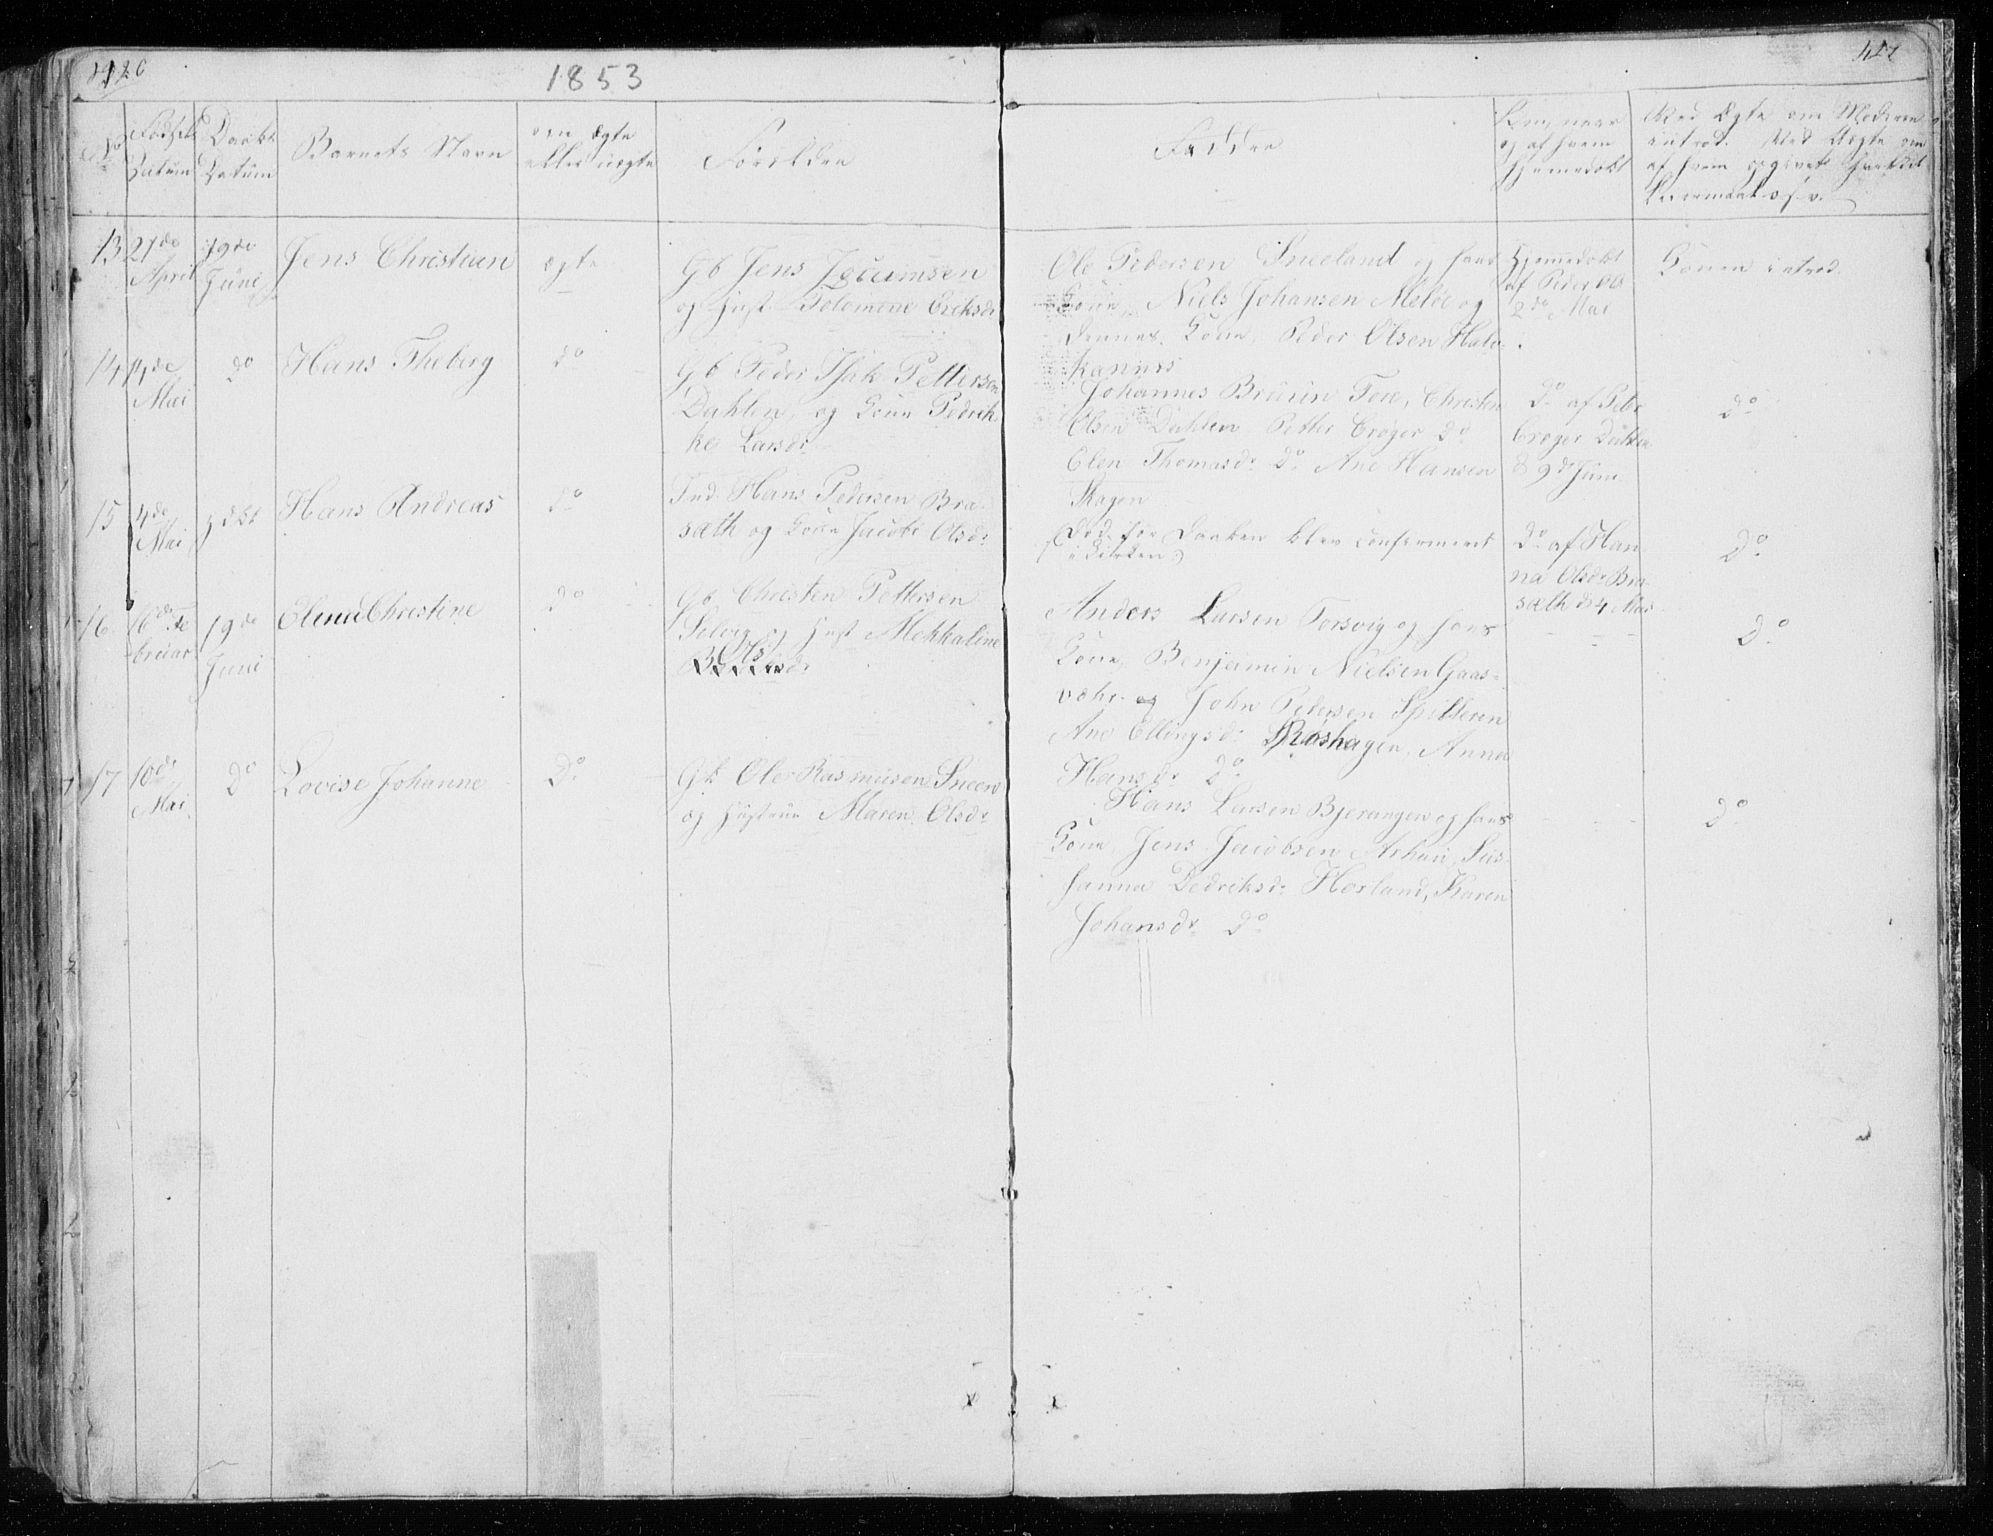 426
1853
427
No
Fødsels Datum
Daabs Datum
Barnets Navn
om ægte eller uægte
Forældre
Faddre
og af hvem hjemmedøbt
Ved Ægte om Moderen introd. Ved Uægte om af hvem opgivet
13
27de April
19de Juni
Jens Christian
ægte
Gb Jens Jocumsen
og Hust. Solomene Eriksdr
Ole Pedersen Sneeland og hans
Kone, Niels Johansen Meløe og
dennes Kone, Peder Olsen
Hjemmedøbt
af Peder Ols
2de Mai
Konen introd.
14
14de Mai
do
Hans Theberg
do
Gb Peder Isak Pettersen
Dahlen, og Kone Fedrik-
ke Larsdr
Johannes Bruun Fore, Christen
Olsen Dahlen Petter Crøger do
Elen Thomasdr do Ane Hansen
Skagen
do af Peter
Crøger Dahlen
9de Juni
do
15
4de Mai
Hans Andreas
do
Ind. Hans Pedersen Bra-
sæth og Kone Jacobe Olsdr
(Død før Daaben blev confirmeret
i Kirken)
do af Han
na Olsdr Bra
sæth d 4 Mai
do
16
16de Februar
19de Juni
Elena Christine
do
Gb Christen Pettersen
Selvig og Hust Mekkaline
Olsdr
Anders Larsen Torsvig og hans
Kone, Benjamin Nielsen Gaas-
vær og John Petersen Spilderen
Ane Ellingsdr Røshagen, Anna
Hansdr do
do
17
10de Mai
do
Lovise Johanne
do
Gk Ole Rasmusen Sneen
og Hustrue Maren Olsdr
Hans Larsen Bjerangen og hans
Kone Jens Jacobsen Arhau, Sus-
hanna Dedriksdr Horland, Karen
Johansdr do
do